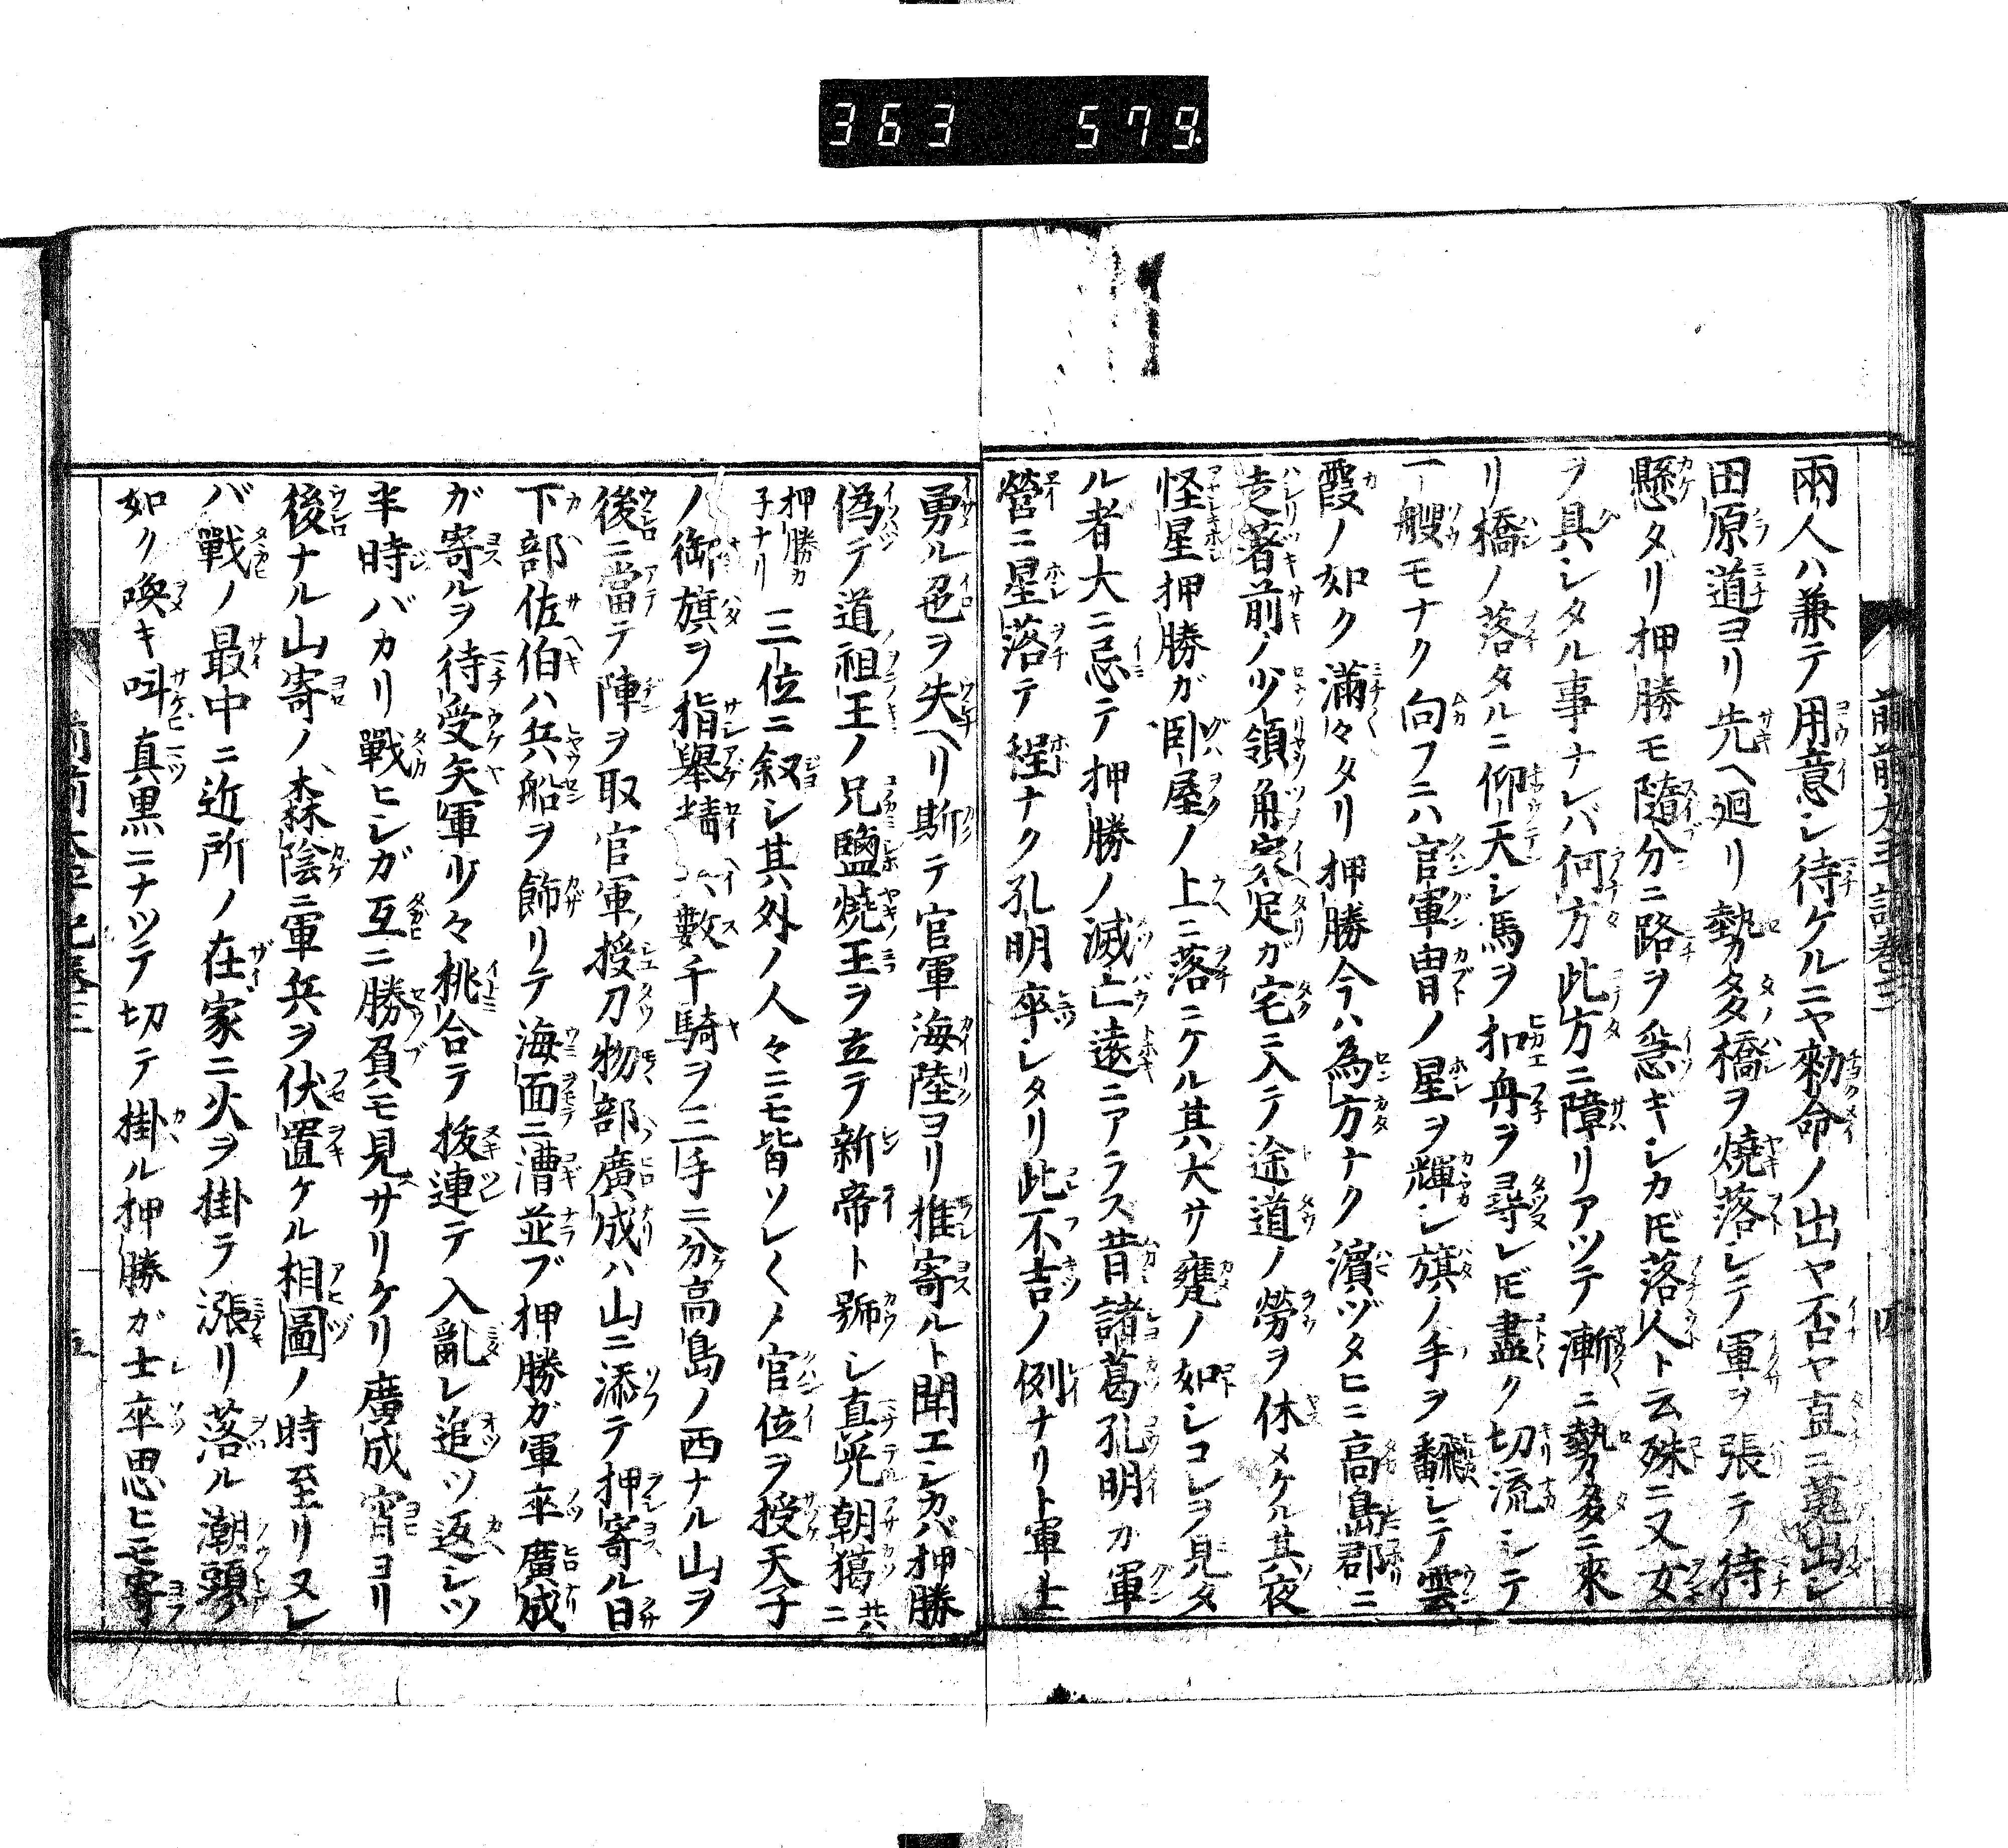 363 579
前前太平記卷三 四
兩人ハ兼テ用意シ待ケルニヤ勅命ノ出ヤ否ヤ直ニ蒐出シ
田原道ヨリ先ヘ廻リ勢多橋ヲ燒落シテ軍ヲ張テ待
懸タリ押勝モ隨分ニ路ヲ急ギシカ𪜈落人ト云殊ニ又女
ヲ具シタル事ナレバ何方此方ニ障リアツテ漸ニ勢多ニ來
リ橋ノ落タルニ仰天シ馬ヲ扣舟ヲ尋レ𪜈盡ク切流シテ
一艘モナク向フニハ官軍冑ノ星ヲ輝シ旗ノ手ヲ翻シテ雲
霞ノ如ク滿々タリ押勝今ハ為方ナク濱ヅタヒニ高島郡ニ
走著前ノ少領角家足ガ宅ニ入テ途道ノ勞ヲ休メケル其夜
怪星押勝ガ臥屋ノ上ニ落ニケル其大サ甕ノ如シコレヲ見タ
ル者大ニ忌テ押勝ノ滅亡遠ニアラズ昔諸葛孔明カ軍
營ニ星落テ程ナク孔明卒シタリ此不吉ノ例ナリト軍士
勇ル色ヲ失ヘリ斯テ官軍海陸ヨリ推寄ルト聞エシカバ押勝
偽テ道祖王ノ兄鹽燒王ヲ立テ新帝ト號シ直光朝獦 共ニ
押勝カ子ナリ 三位ニ叙シ其外ノ人々ニモ皆ソレ〱ノ官位ヲ授天子
ノ御旗ヲ指舉 數千騎ヲ三手ニ分高島ノ西ナル山ヲ
後ニ當テ陣ヲ取官軍ノ授刀物部廣成ハ山ニ添テ押寄ル日
下部佐伯ハ兵船ヲ飾リテ海面ニ漕並ブ押勝ガ軍卒廣成
ガ寄ルヲ待受矢軍少々桃合テ拔連テ入亂レ追ツ返シツ
半時バカリ戰ヒシガ互ニ勝負モ見ヘサリケリ廣成宵ヨリ
後ナル山寄ノ森陰ニ軍兵ヲ伏置ケル相圖ノ時至リヌレ
バ戰ノ最中ニ近所ノ在家ニ火ヲ掛テ漲リ落ル潮頭ノ
如ク喚キ叫真黒ニナツテ切テ掛ル押勝ガ士卒思ヒモ寄
前前太平記卷三 五